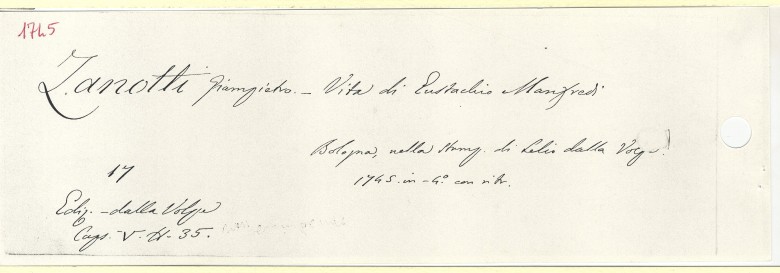 1745
Zanotti Giampietro. - Vita di Eustachio Manfredi
Bologna, nella stamp. di Lelio dalla Volpe.
17
1745. in-4° con ritr.
Ediz. - dalla Volpe
Caps. V. H- 35.